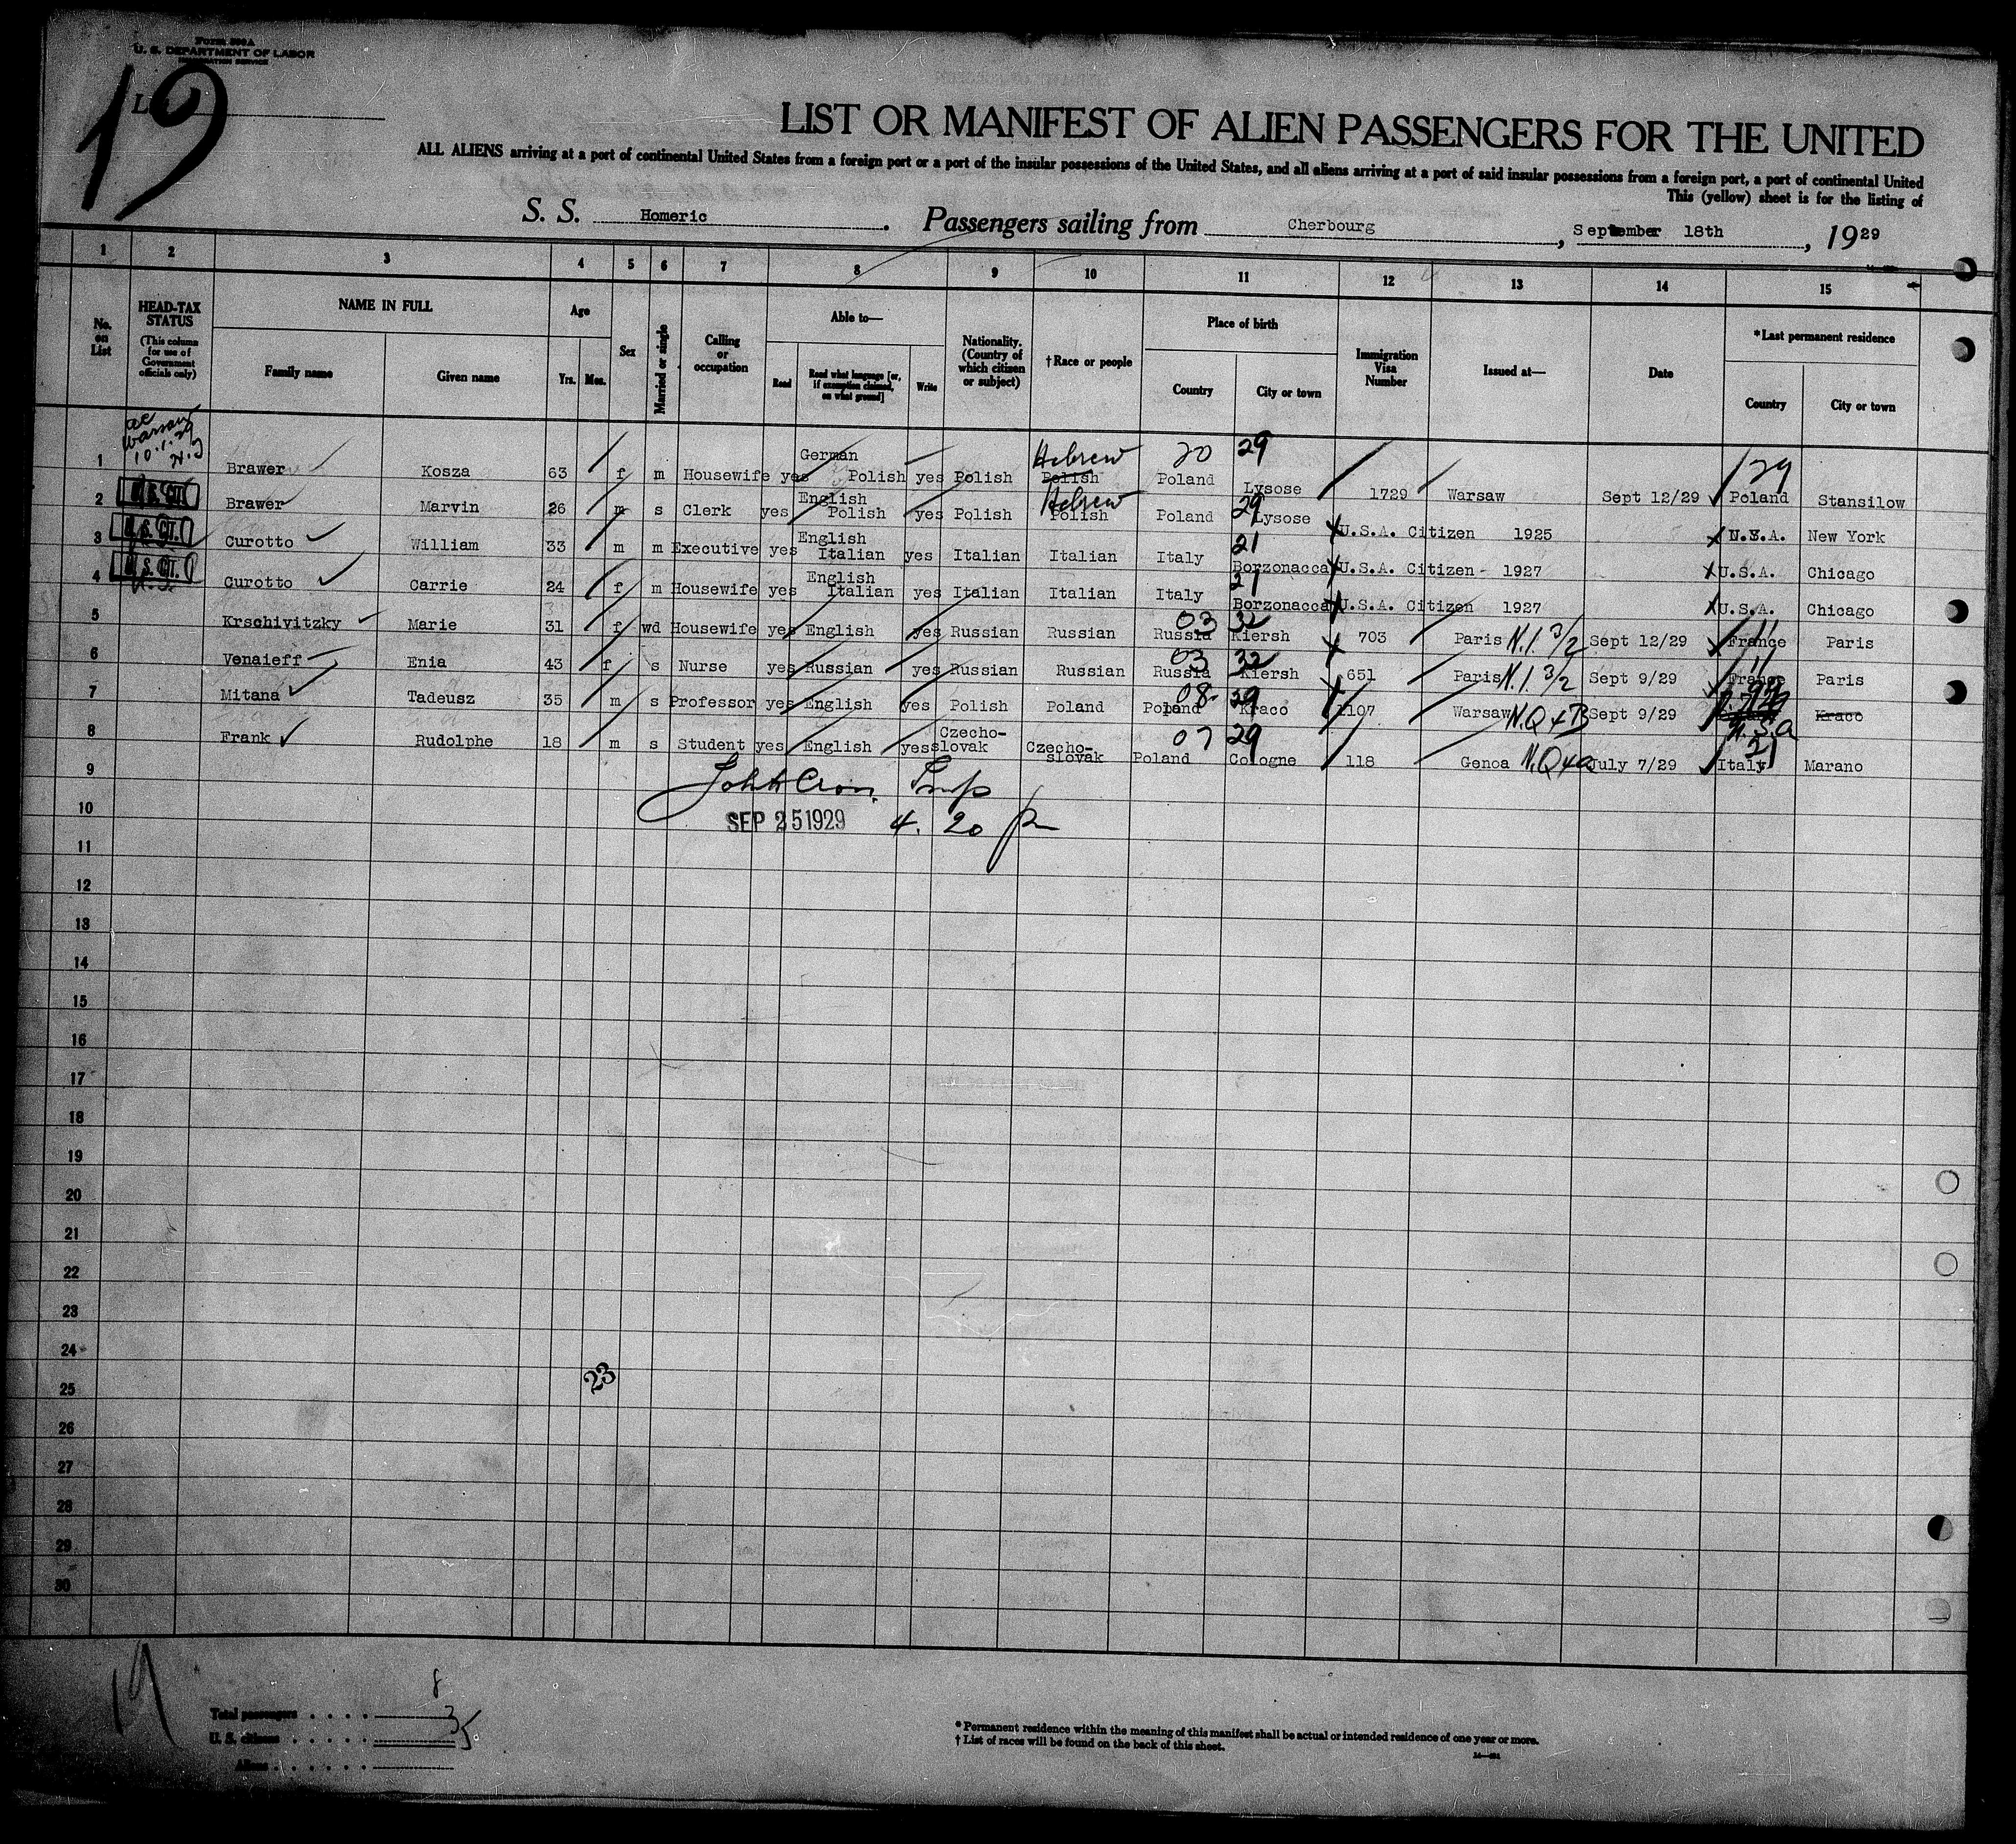 Form 500A
U. S. DEPARTMENT OF LABOR
IMMIGRATION SERVICE
19
LIST OR MANIFEST OF ALIEN PASSENGERS FOR THE UNITED
ALL ALIENS arriving at a port of continental United States from a foreign port or a port of the insular possessions of the United States, and all aliens arriving at a port of said insular possessions from a foreign port, a port of continental United
This (yellow) sheet is for the listing of
S. S. Homeric. Passengers sailing from Cherbourg, September 18th, 1929
1 2 3 4 5 6 7 8 9 10 11 12 13 14 15
No. on List
HEAD-TAX STATUS (This column for use of Government officials only)
NAME IN FULL
Family name Given name
Age
Yrs. Mos.
Sex
Married or single
Calling or occupation
Able to—
Read Read what language [or, if exemption claimed, on what ground] Write
Nationality. (Country of which citizen or subject)
†Race or people
Place of birth
Country City or town
Immigration Visa Number
Issued at—
Date
*Last permanent residence
Country City or town
Warsaw 10.1.29
1 Brawer Kosza 63 f m Housewife yes German Polish yes Polish Hebrew Polish 20 Poland 29 Lysose 1729 Warsaw Sept 12/29 29 Poland Stansilow
2 U.S. CIT. Brawer Marvin 26 m s Clerk yes English Polish yes Polish Hebrew Polish Poland 29 Lysose U.S.A. Citizen 1925 U.S.A. New York
3 U.S. CIT. Curotto William 33 m m Executive yes English Italian yes Italian Italian Italy 21 Borzonacca U.S.A. Citizen 1927 U.S.A. Chicago
4 U.S. CIT. Curotto Carrie 24 f m Housewife yes English Italian yes Italian Italian Italy 21 Borzonacca U.S.A. Citizen 1927 U.S.A. Chicago
5 Krschivitzky Marie 31 f wd Housewife yes English yes Russian Russian 03 Russia 32 Kiersh 703 Paris N.I. 3/2 Sept 12/29 11 France Paris
6 Venaieff Enia 43 f s Nurse yes Russian yes Russian Russian 03 Russia 32 Kiersh 651 Paris N.I. 3/2 Sept 9/29 11 France Paris
7 Mitana Tadeusz 35 m s Professor yes English yes Polish Poland 08 Poland 29 Kraco 1107 Warsaw N.Q 4 B Sept 9/29 U.S.A Kraco
8 Frank Rudolphe 18 m s Student yes English yes Czecho-slovak Czecho-slovak 07 Poland 29 Cologne 118 Genoa N.Q 4 a July 7/29 21 Italy Marano
9
SEP 25 1929 4. 20 p
10
11
12
13
14
15
16
17
18
19
20
21
22
23
24
23
25
26
27
28
29
30
19
8
Total passengers
3
U. S. citizens
5
Aliens
* Permanent residence within the meaning of this manifest shall be actual or intended residence of one year or more.
† List of races will be found on the back of this sheet.